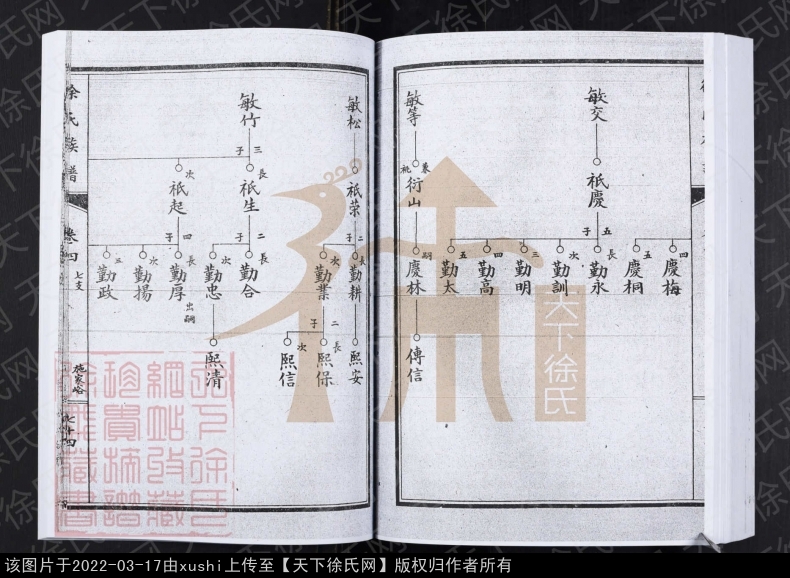 敏交
祇慶
五子
慶梅 四
慶桐 五
勤永 長
勤訓 次
勤明 三
勤高 四
勤太 五
敏等
兼祧
衍山
慶林 嗣
傳信
敏松
祇荣
二子
勤耕 長
勤業 次
熙安
二子
熙保 長
熙信 次
敏竹
三子
祇生 長
祇起 次
二子
勤合 長
勤忠 次
熙清
四子
勤厚 長
出嗣
勤揚 次
勤政 五
徐氏族譜
卷四 七支
施家峪
七十四
天下徐氏
天下徐氏网
该图片于2022-03-17由xushi上传至【天下徐氏网】版权归作者所有